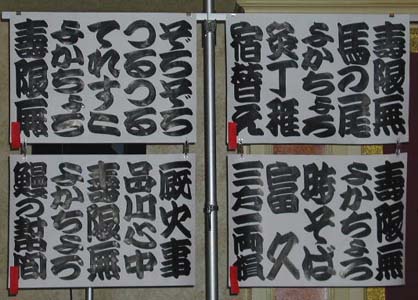 壽限無
馬の尾
よかちょろ
灸丁稚
宿替え
ぞろぞろ
つるつる
てれすこ
よかちょろ
壽限無
壽限無
よかちょろ
時そば
富久
三方一両損
厩火事
品川心中
壽限無
よかちょろ
鰻の幇間